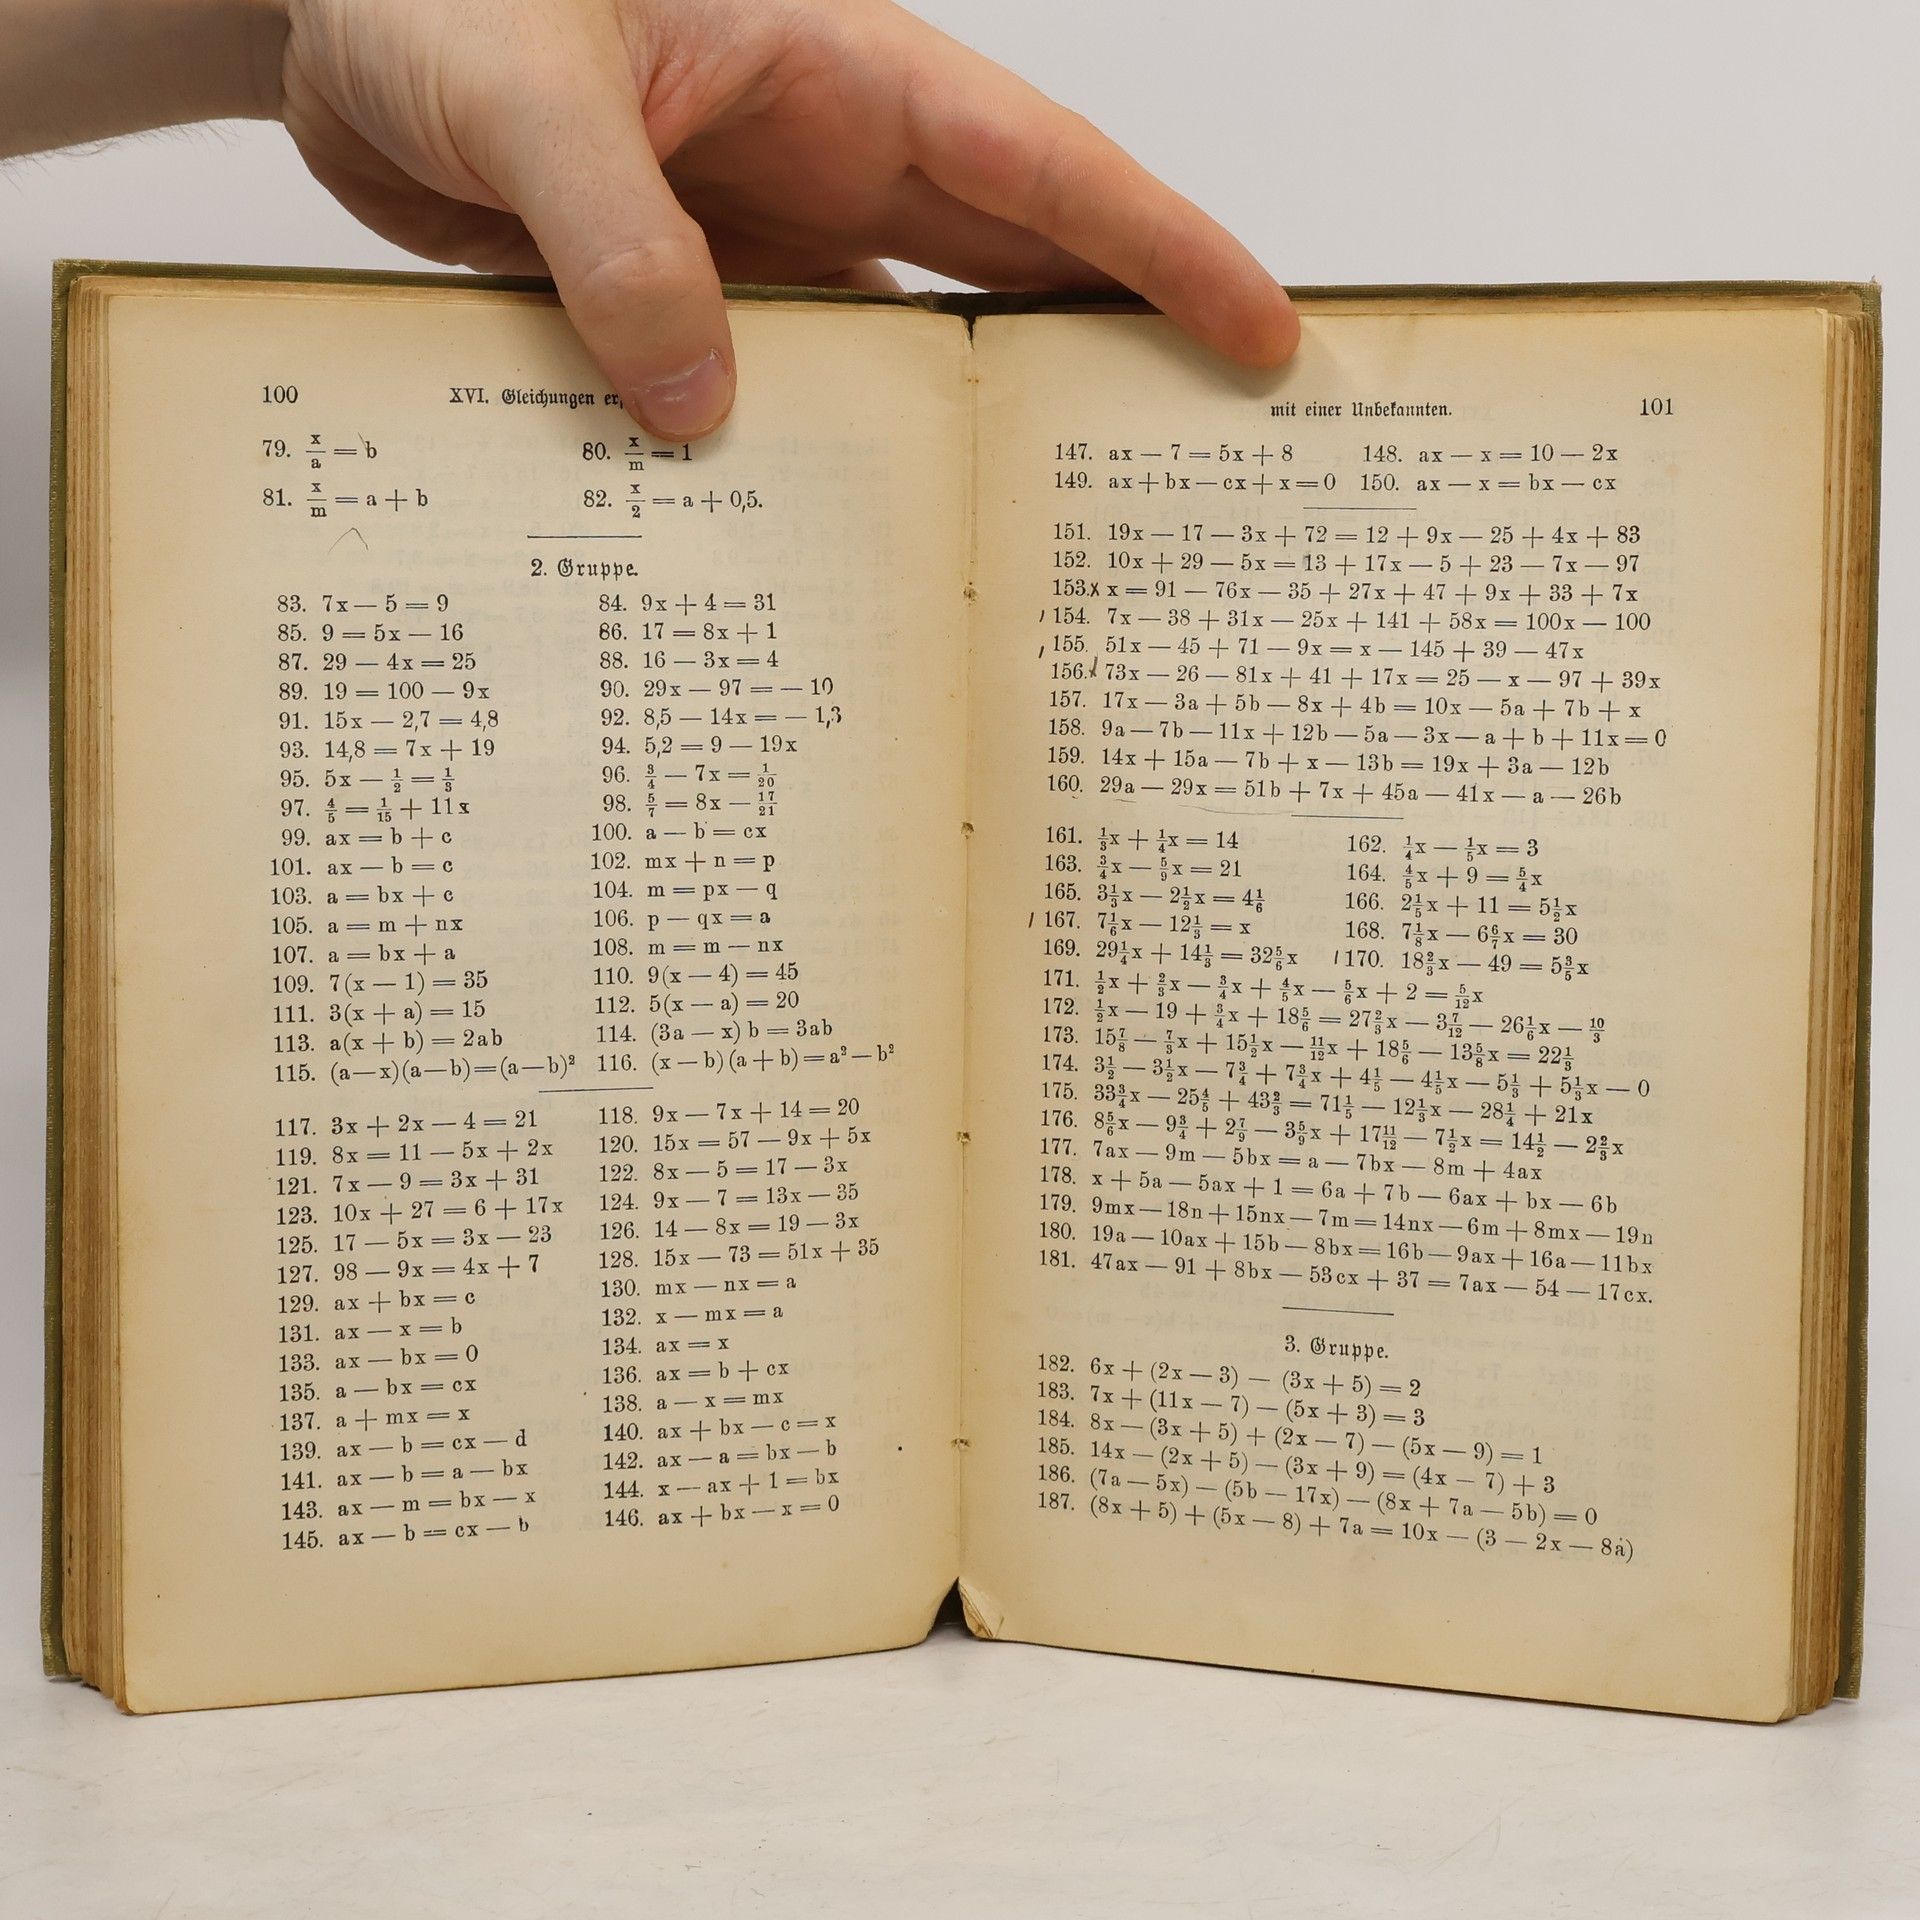 100 XVI. Gleichungen
79. x/a = b 80. x/m = 1
81. x/m = a + b 82. x/2 = a + 0,5.
2. Gruppe.
83. 7x — 5 = 9 84. 9x + 4 = 31
85. 9 = 5x — 16 86. 17 = 8x + 1
87. 29 — 4x = 25 88. 16 — 3x = 4
89. 19 = 100 — 9x 90. 29x — 97 = — 10
91. 15x — 2,7 = 4,8 92. 8,5 — 14x = — 1,3
93. 14,8 = 7x + 19 94. 5,2 = 9 — 19x
95. 5x — 1/2 = 1/3 96. 3/4 — 7x = 1/20
97. 4/5 = 1/15 + 11x 98. 5/7 = 8x — 17/21
99. ax = b + c 100. a — b = cx
101. ax — b = c 102. mx + n = p
103. a = bx + c 104. m = px — q
105. a = m + nx 106. p — qx = a
107. a = bx + a 108. m = m — nx
109. 7(x — 1) = 35 110. 9(x — 4) = 45
111. 3(x + a) = 15 112. 5(x — a) = 20
113. a(x + b) = 2ab 114. (3a — x) b = 3ab
115. (a—x)(a—b)=(a—b)² 116. (x — b)(a + b) = a² — b²
117. 3x + 2x — 4 = 21 118. 9x — 7x + 14 = 20
119. 8x = 11 — 5x + 2x 120. 15x = 57 — 9x + 5x
121. 7x — 9 = 3x + 31 122. 8x — 5 = 17 — 3x
123. 10x + 27 = 6 + 17x 124. 9x — 7 = 13x — 35
125. 17 — 5x = 3x — 23 126. 14 — 8x = 19 — 3x
127. 98 — 9x = 4x + 7 128. 15x — 73 = 51x + 35
129. ax + bx = c 130. mx — nx = a
131. ax — x = b 132. x — mx = a
133. ax — bx = 0 134. ax = x
135. a — bx = cx 136. ax = b + cx
137. a + mx = x 138. a — x = mx
139. ax — b = cx — d 140. ax + bx — c = x
141. ax — b = a — bx 142. ax — a = bx — b
143. ax — m = bx — x 144. x — ax + 1 = bx
145. ax — b = cx — b 146. ax + bx — x = 0
mit einer Unbekannten. 101
147. ax — 7 = 5x + 8 148. ax — x = 10 — 2x
149. ax + bx — cx + x = 0 150. ax — x = bx — cx
151. 19x — 17 — 3x + 72 = 12 + 9x — 25 + 4x + 83
152. 10x + 29 — 5x = 13 + 17x — 5 + 23 — 7x — 97
153. x = 91 — 76x — 35 + 27x + 47 + 9x + 33 + 7x
154. 7x — 38 + 31x — 25x + 141 + 58x = 100x — 100
155. 51x — 45 + 71 — 9x = x — 145 + 39 — 47x
156. 73x — 26 — 81x + 41 + 17x = 25 — x — 97 + 39x
157. 17x — 3a + 5b — 8x + 4b = 10x — 5a + 7b + x
158. 9a — 7b — 11x + 12b — 5a — 3x — a + b + 11x = 0
159. 14x + 15a — 7b + x — 13b = 19x + 3a — 12b
160. 29a — 29x = 51b + 7x + 45a — 41x — a — 26b
161. 1/3x + 1/4x = 14 162. 1/4x — 1/5x = 3
163. 3/4x — 5/9x = 21 164. 4/5x + 9 = 5/4x
165. 3 1/3x — 2 1/2x = 4 1/6 166. 2 1/5x + 11 = 5 1/2x
167. 7 1/6x — 12 1/3 = x 168. 7 1/8x — 6 6/7x = 30
169. 29 1/4x + 14 1/3 = 32 5/6x 170. 18 2/3x — 49 = 5 3/5x
171. 1/2x + 2/3x — 3/4x + 4/5x — 5/6x + 2 = 5/12x
172. 1/2x — 19 + 3/4x + 18 5/6 = 27 2/3x — 3 7/12 — 26 1/6x — 10/3
173. 15 7/8 — 7/3x + 15 1/2x — 11/12x + 18 5/6 — 13 5/8x = 22 1/3
174. 3 1/2 — 3 1/2x — 7 3/4 + 7 3/4x + 4 1/5 — 4 1/5x — 5 1/3 + 5 1/3x — 0
175. 33 3/4x — 25 4/5 + 43 2/3 = 71 1/5 — 12 1/3x — 28 1/4 + 21x
176. 8 5/6x — 9 3/4 + 2 7/9 — 3 5/9x + 17 11/12 — 7 1/2x = 14 1/2 — 2 2/3x
177. 7ax — 9m — 5bx = a — 7bx — 8m + 4ax
178. x + 5a — 5ax + 1 = 6a + 7b — 6ax + bx — 6b
179. 9mx — 18n + 15nx — 7m = 14nx — 6m + 8mx — 19n
180. 19a — 10ax + 15b — 8bx = 16b — 9ax + 16a — 11bx
181. 47ax — 91 + 8bx — 53cx + 37 = 7ax — 54 — 17cx.
3. Gruppe.
182. 6x + (2x — 3) — (3x + 5) = 2
183. 7x + (11x — 7) — (5x + 3) = 3
184. 8x — (3x + 5) + (2x — 7) — (5x — 9) = 1
185. 14x — (2x + 5) — (3x + 9) = (4x — 7) + 3
186. (7a — 5x) — (5b — 17x) — (8x + 7a — 5b) = 0
187. (8x + 5) + (5x — 8) + 7a = 10x — (3 — 2x — 8a)